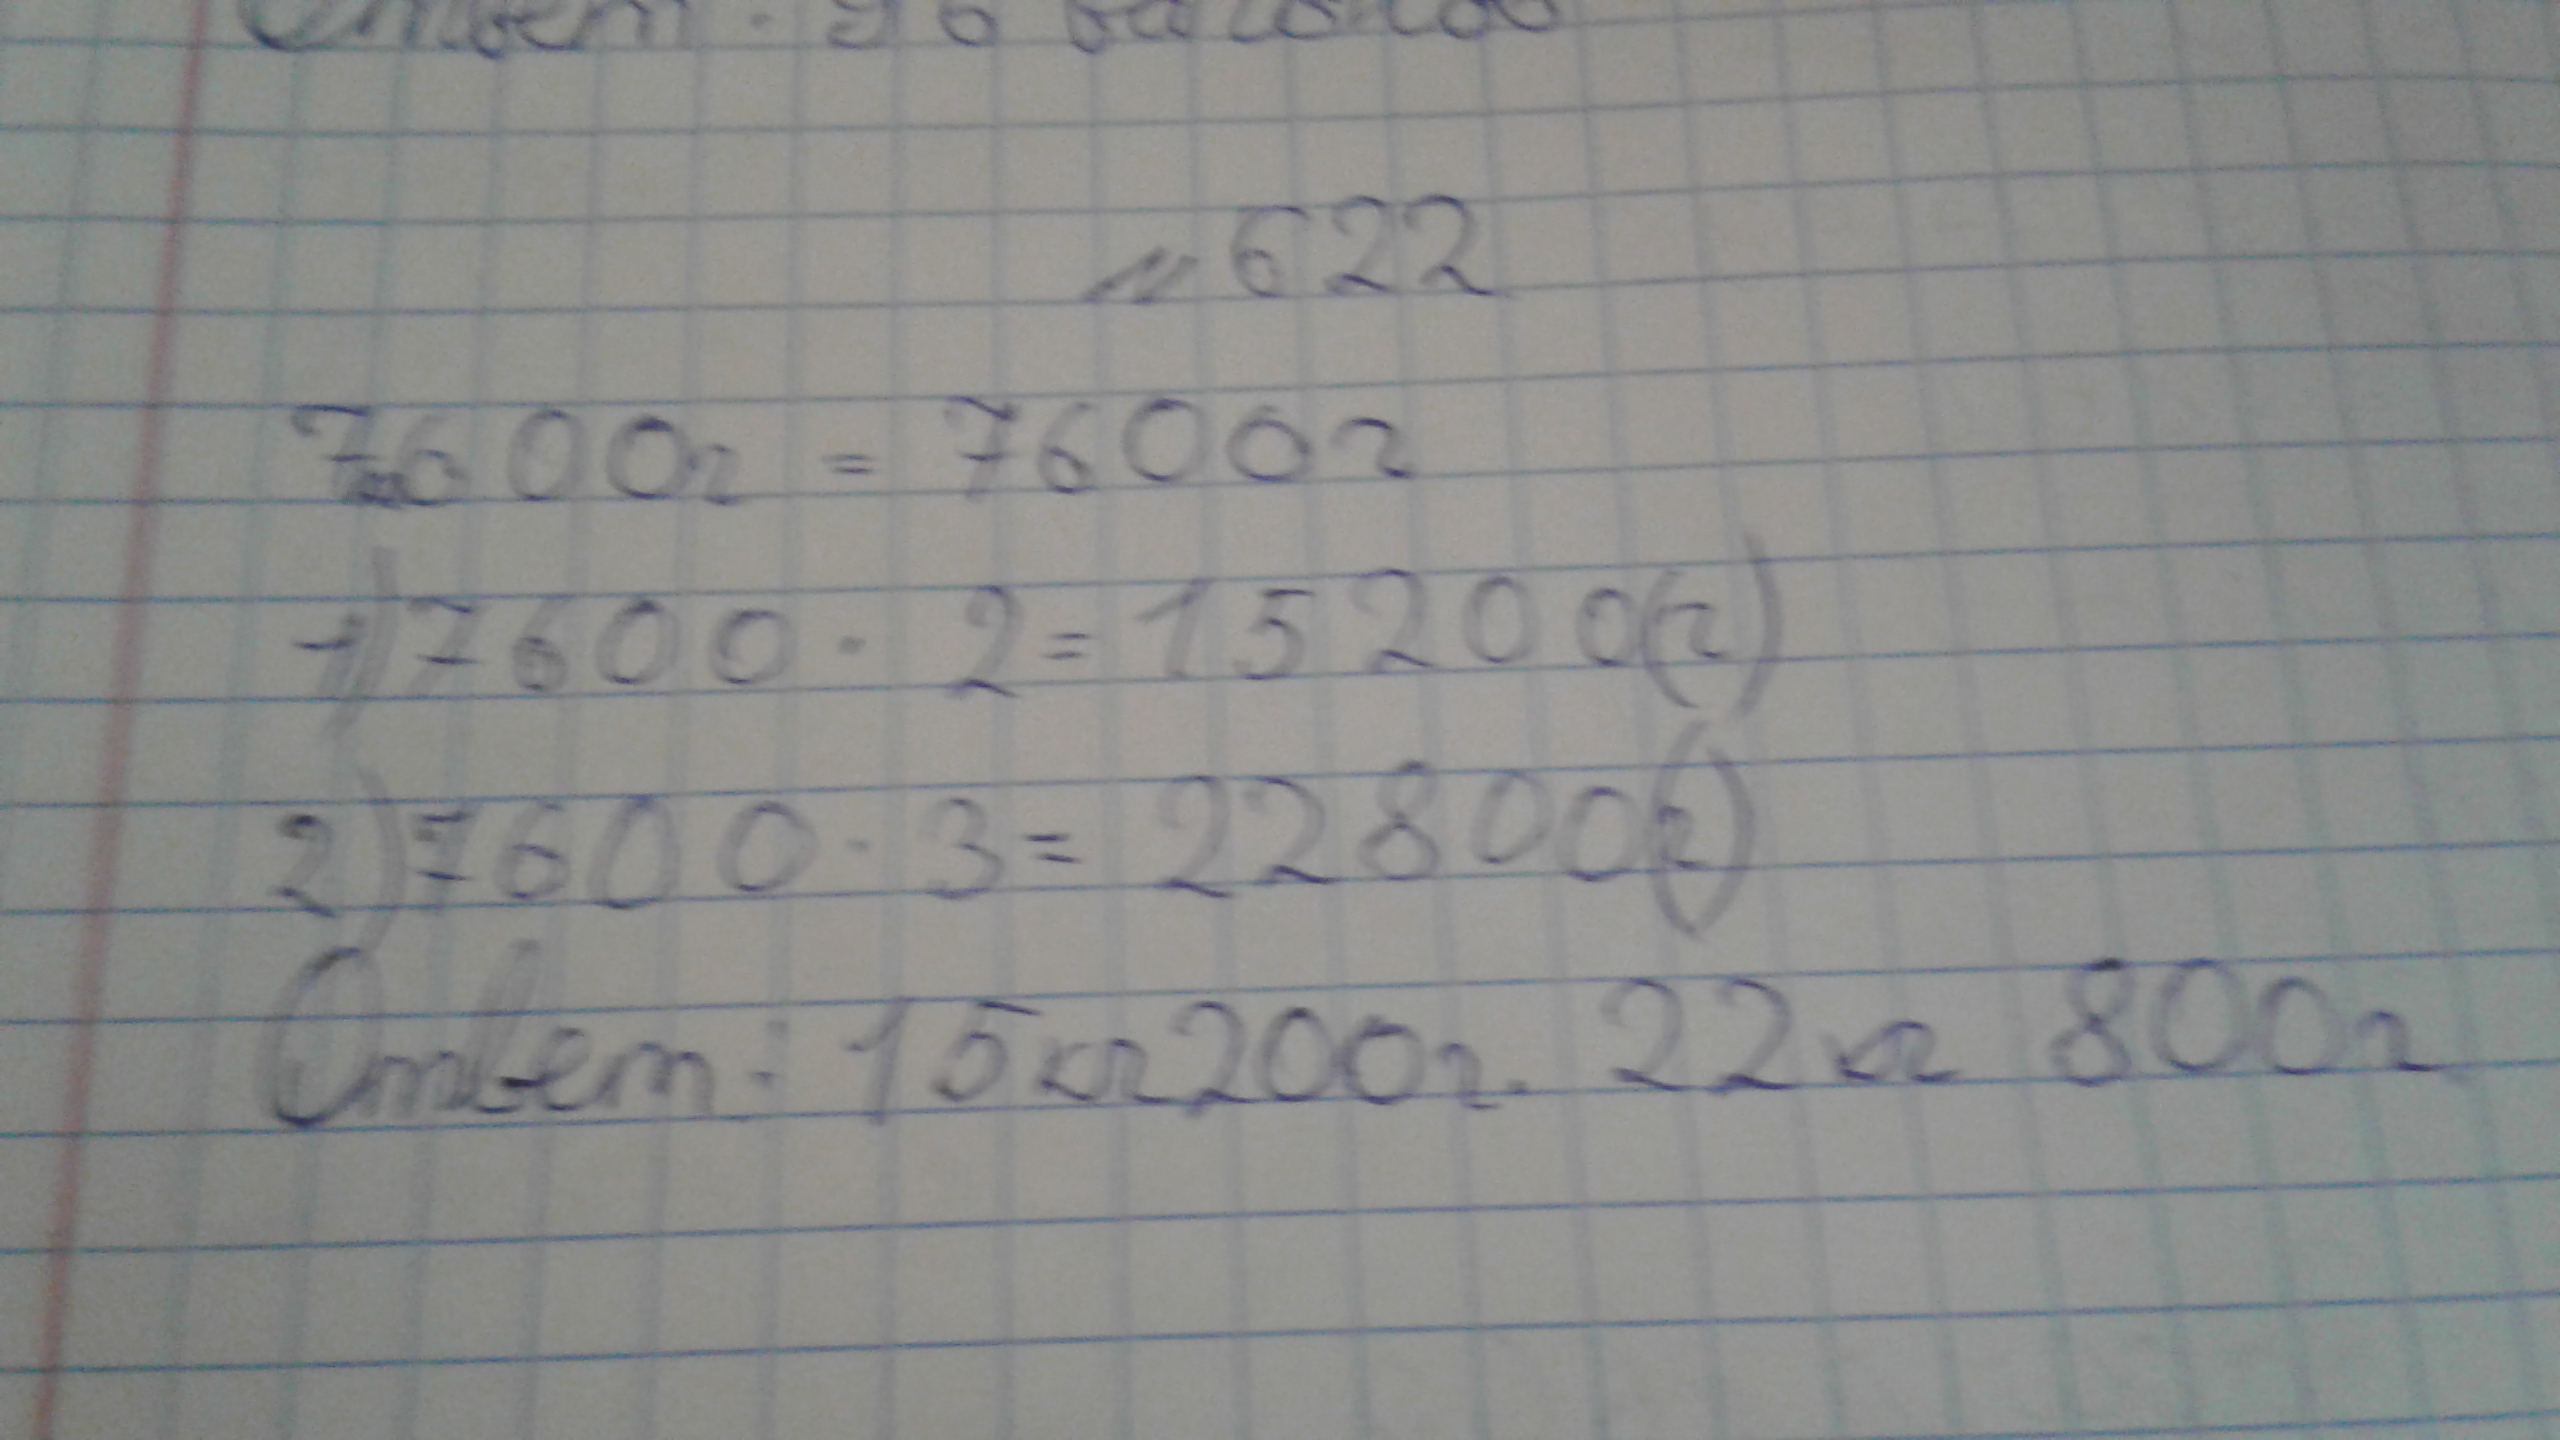 Ответ: 96 вагонов
№622
7600г = 7600г
1) 7600 · 2 = 15200(г)
2) 7600 · 3 = 22800(г)
Ответ: 15кг 200г. 22кг 800г